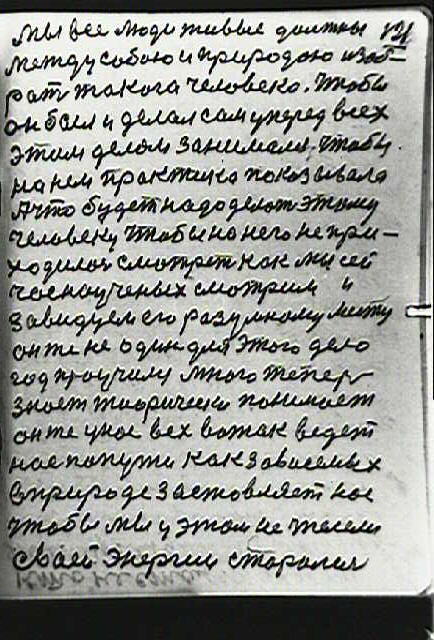 Мы все люди живые должны 121
между собою и природою изоб-
рат такога человека. Чтобы
он был и делал сам уперед всех
этим делом занимался, чтобы
на нем практика показывала
А что будет надо делат этому
человеку чтобы на него не при-
ходилос смотрет как мы сей
час на ученых смотрим и
завидуем его разумному месту
он же не один для этого дело
год проучился много тепер
знает теорически понимает
он же у нас вех вожак ведет
нас по пути как зависемых
в природе заставляет нас
чтобы мы у этом не жители
сваей энергии старалис